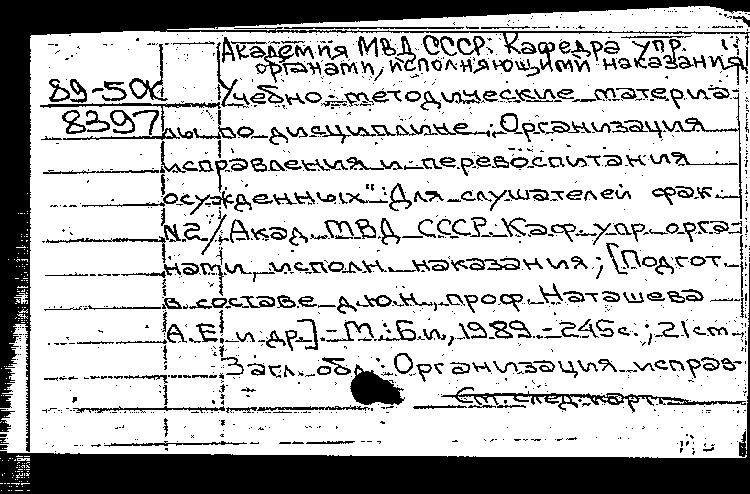 Академия МВД СССР. Кафедра упр.
органами, исполняющими наказания
89-50к Учебно-методические материа-
8397 лы по дисциплине „Организация
исправления и перевоспитания
осужденных": Для слушателей фак.
№2/Акад. МВД СССР. Каф. упр. орга-
нами, исполн. наказания; [Подгот.
в составе д.ю.н., проф. Наташева
А.Е и др.]-М.:Б.и., 1989.-245с.; 21см.
Загл. обл.: Организация исправ-
См. след. карт.